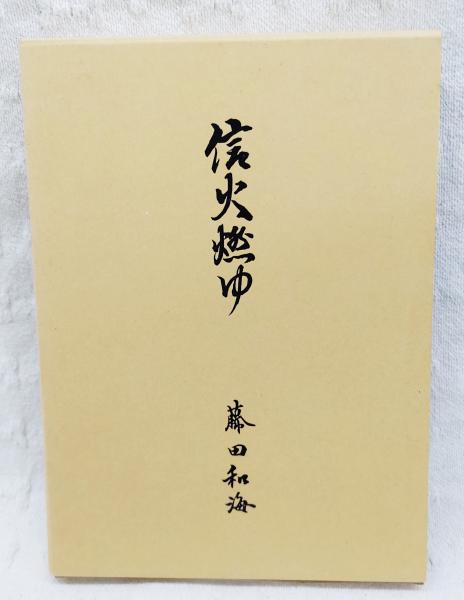 信火燃ゆ
藤田和海